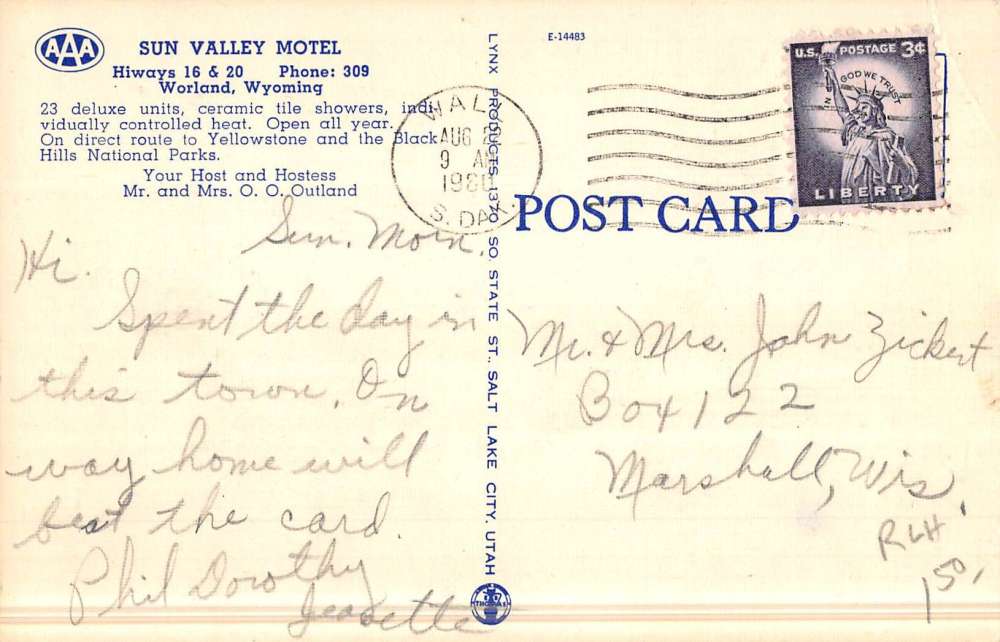 AAA
SUN VALLEY MOTEL
Hiways 16 & 20 Phone: 309
Worland, Wyoming
23 deluxe units, ceramic tile showers, indi-
vidually controlled heat. Open all year.
On direct route to Yellowstone and the Black
Hills National Parks.
Your Host and Hostess
Mr. and Mrs. O. O. Outland
Sun. Morn.
Hi.
Spent the day in
this town. On
way home will
beat the card.
Phil Dorothy
LYNX PRODUCTS 1370 SO. STATE ST., SALT LAKE CITY, UTAH
THOMAS
E-14483
WALL
AUG
9 AM
1960
S. DAK.
U.S. POSTAGE 3¢
IN GOD WE TRUST
LIBERTY
POST CARD
Mr. & Mrs. John Zickert
Box 122
Marshall, Wis.
RLH
150